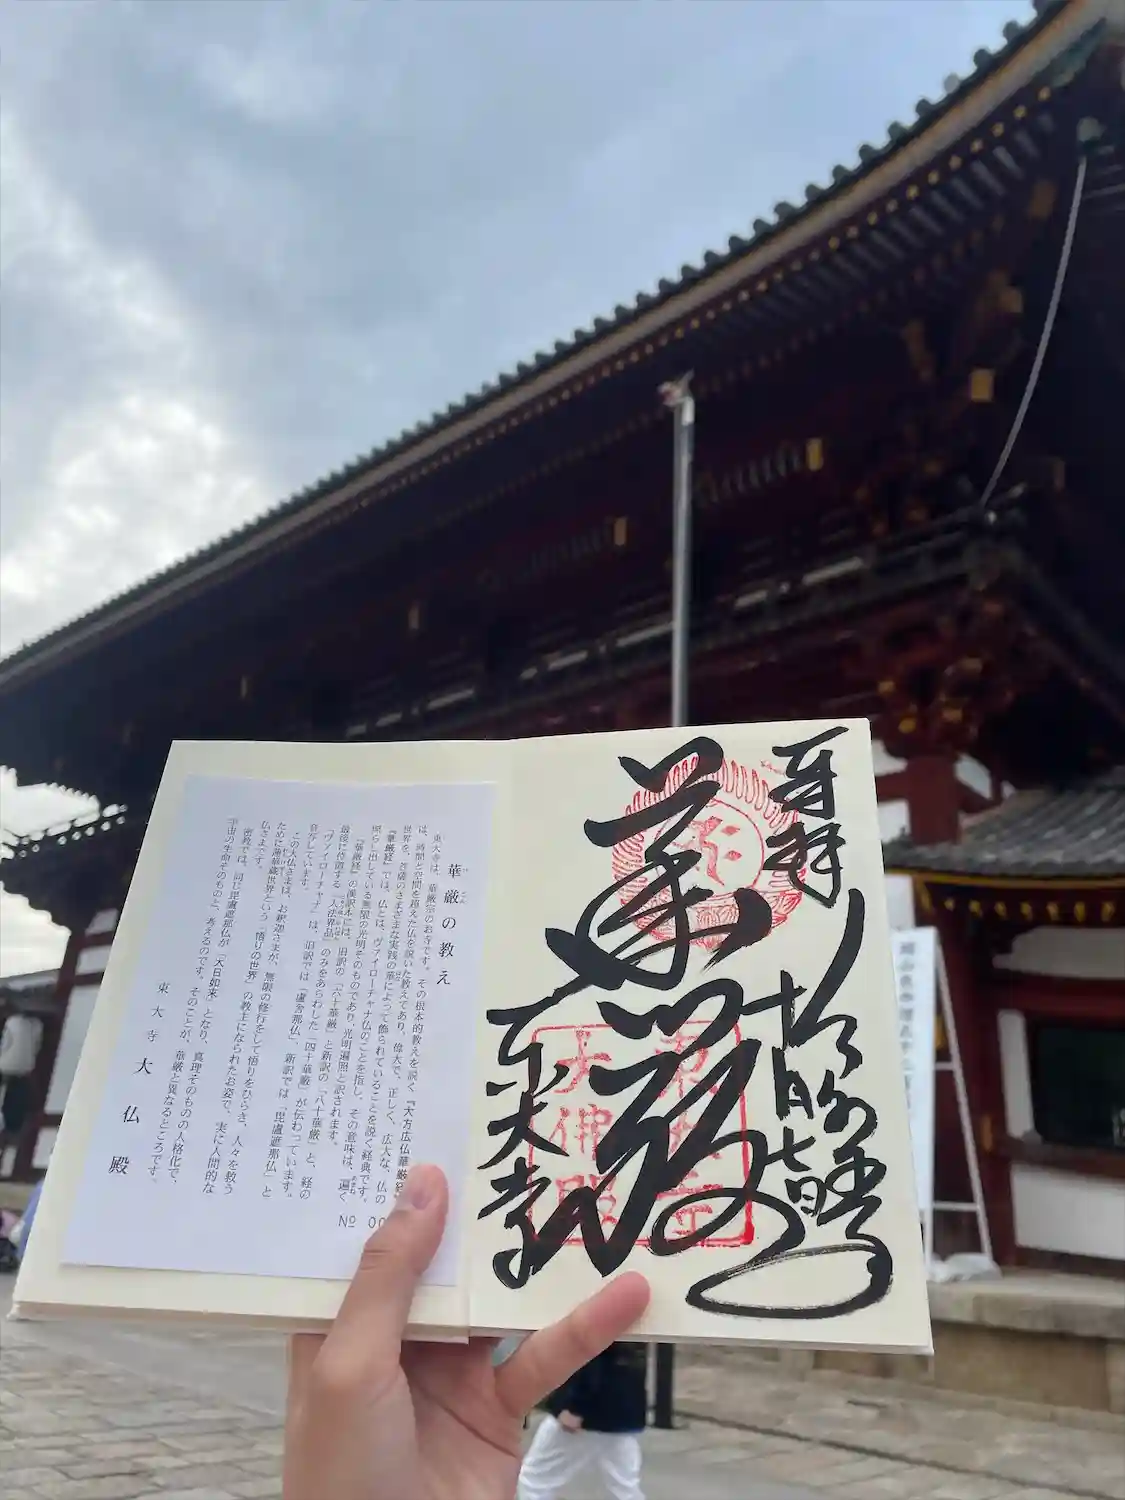 奉拝
十月七日
華厳
東大寺
東大寺
大佛殿
華厳の教え
東大寺は、華厳宗のお寺です。その根本的教えを説く『大方広仏華厳経』
は、時間と空間を超えた仏を説いた教えであり、偉大で、正しく、広大な、仏の
世界を、菩薩のさまざまな実践の華によって飾られていることを説く経典です。
『華厳経』では、仏とは、ヴァイローチャナ仏のことを指し、その意味は、遍く
照らし出している無限の光明そのものであり、光明遍照と訳されます。
『華厳経』の漢訳本には、旧訳の「六十華厳」と新訳の「八十華厳」と、経の
最後に位置する「入法界品」のみをあらわした「四十華厳」が伝わっています。
「ヴァイローチャナ」は、旧訳では「盧舎那仏」、新訳では「毘盧遮那仏」と
音写しています。
この大仏さまは、お釈迦さまが、無限の修行をして悟りをひらき、人々を救う
ために蓮華蔵世界という「悟りの世界」の教主になられたお姿で、実に人間的な
仏さまです。
密教では、同じ毘盧遮那仏が「大日如来」となり、真理そのものの人格化で、
宇宙の生命そのものと、考えるのです。そのことが、華厳と異なるところです。
東大寺 大仏殿
№ 00